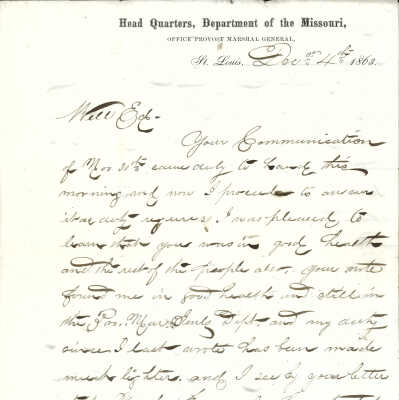 Head Quarters, Department of the Missouri,
OFFICE PROVOST MARSHAL GENERAL,
St. Louis, Dec 4th 186
Well Ed-
Your Communication
of Nov 30th came duly to hand this
morning and now I proceed to answer
it as duty requires. I was pleased to
learn that you was in good health
and the rest of the people also, your note
found me in good health and still in
the Pro. Mar. Genls Dept. and my duty
since I last wrote has been made
much lighter. and I see by your letter